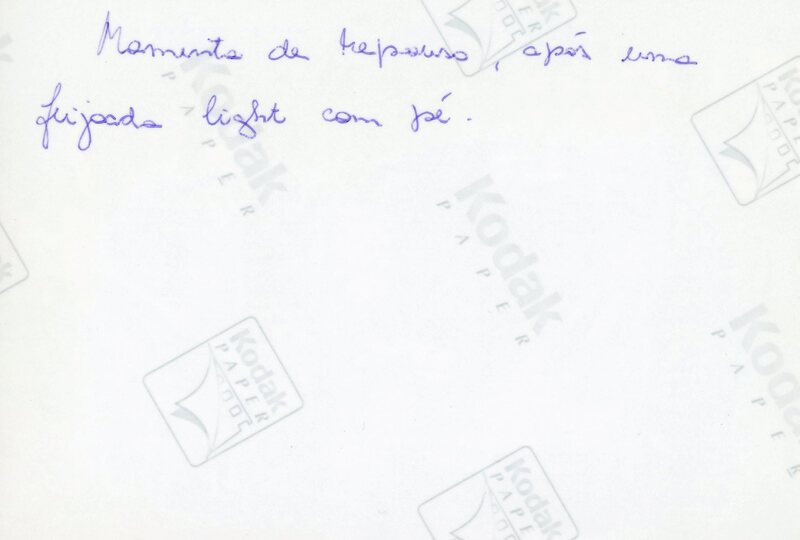 Momento de repouso, após uma
feijoada light com pé.
Kodak
PAPER
Kodak
PAPER
Kodak
PAPER
Kodak
PAPER
Kodak
PAPER
Kodak